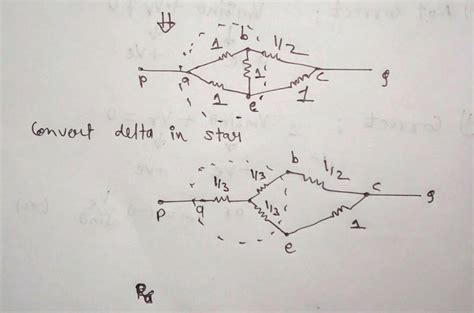 b
1
1/2
P
a
1
c
q
1
e
1
Convert delta in star
b
1/2
1/3
1/3
c
q
P
a
1/3
1
e